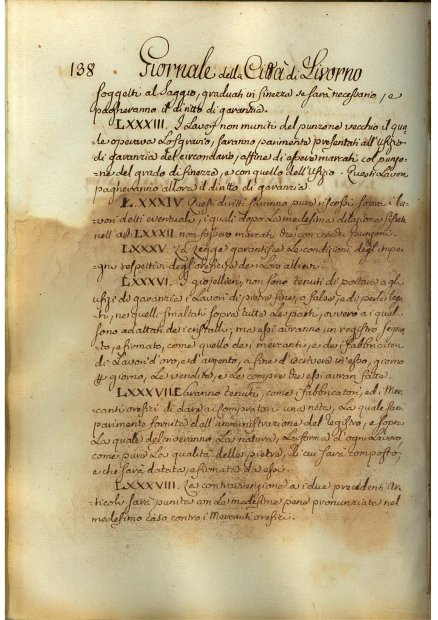 138 Giornale della Città di Livorno
soggetti al Saggio, graduati in finezza se sarà necessario, e
pagheranno il diritto di garanzia.
LXXXIII. I Lavori non muniti del punzone vecchio il qua-
le operava Lo sgravio, saranno parimente presentati all'Ufizio
di garanzia del circondario, affine di essere marcati col punzo-
ne del grado di finezza, e con quello dell'Ufizio. Questi Lavori
pagheranno allora il diritto di garanzia
LXXXIV. Questi diritti saranno pure riscossi sopra i la-
vori detti eventuali, i quali dopo La medesima dilazione fissata
nell'art. LXXXII non fossero marcati che con vecchi punzoni.
LXXXV. La Legge garantisce Le condizioni degl'impe-
gni respettivi degl'orefici e dei Loro allievi.
LXXXVI. I gioiellieri, non sono tenuti di portare agl'
ufizi di garanzia i Lavori di pietre fine, o false, e di perle, lega-
ti, ne quelli smaltati sopra tutte Le parti, ovvero a i quali
sono adattati dei cristalli; ma essi avranno un registro, segna-
to, e firmato, come quello dei mercanti, e dei fabbricatori
di Lavori d'oro, e d'argento, a fine d'scrivere in esso, giorno
giorno, Le vendite, e Le compre da essi avran fatte.
LXXXVII. Saranno tenuti, come i fabbricatori, ed i Mer-
canti orefici di dare ai compratori una nota, La quale sarà
parimente fornita dall'amministrazione del Registro, e sopra
La quale descriveranno La natura, La forma d'ogni Lavoro
come pure La qualità delle pietre, di cui sarà composto,
e che sarà datata, e firmata da essi.
LXXXVIII. La contravvenzione a i due precedenti ar-
ticoli sarà punita con Le medesime pene pronunziate nel
medesimo caso contro i Mercanti orefici.